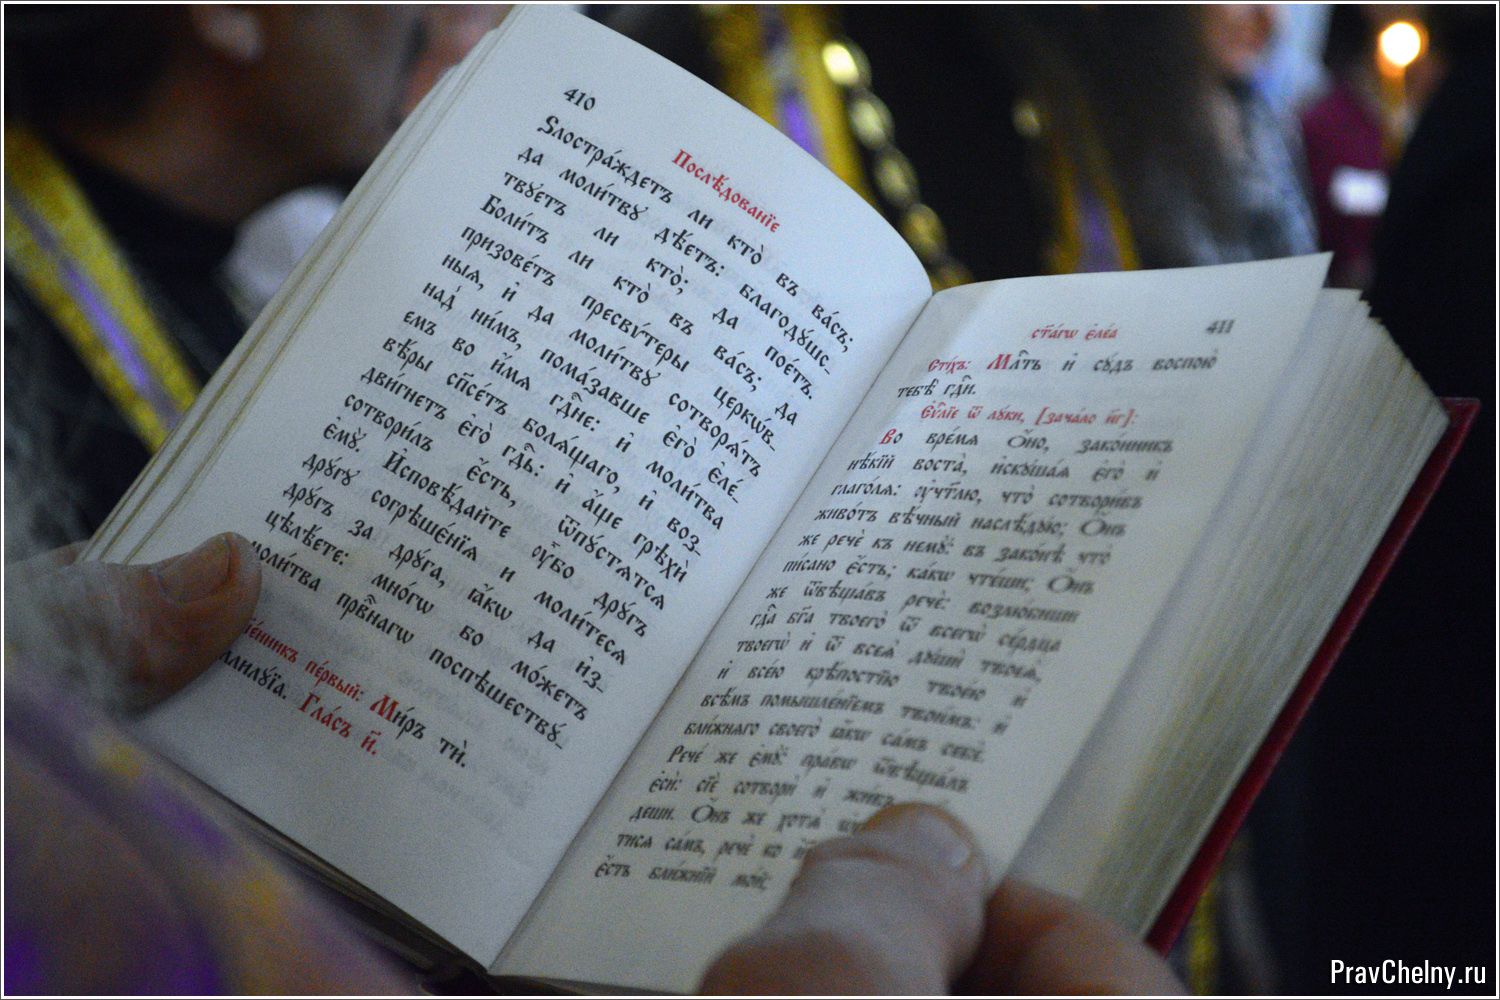 410
Послѣ́дованїе
Ѕлостра́ждетъ ли кто̀ въ ва́съ;
да моли́тву дѣ́етъ: благодꙋшс_
твꙋетъ ли кто̀; да пое́тъ.
Боли́тъ ли кто̀ въ ва́съ; да
призове́тъ пресви́теры церкѡ́в_
ныѧ, и҆ да моли́твꙋ сотворѧ́тъ
над̾ ни́мъ, пома́завше є҆го̀ є҆ле́_
емъ во и҆́мѧ гд҇не: и҆ моли́тва
вѣ́ры сп҃се́тъ болѧ́щаго, и҆ воз_
дви́гнетъ є҆го̀ гд҇ь: и҆ а҆́ще грѣхѝ
сотвори́лъ є҆́сть, ѿпꙋстѧтсѧ
є҆мꙋ̀. И҆сповѣ́дайте ᲂу҆̀бо дрꙋ́гъ
дрꙋ́гꙋ согрѣше́нїѧ и моли́тесѧ
дрꙋ́гъ за дрꙋ́га, ꙗ҆́кѡ да и҆з_
цѣлѣ́ете: мно́гѡ бо мо́жетъ
моли́тва првⷣнагѡ поспѣшествꙋ_
пе́рвый: Ми́ръ тѝ.
Гла́съ и҃.
ст҃а́гѡ є҆ле́а
411
Сті́хъ: Млⷭ҇ть и҆ сꙋ́дъ воспою̀
тебѣ̀ гдⷭ҇и.
Є҆ѵⷢ҇лїе ѿ лꙋки́, [зача́ло н҃г]:
Во вре́мѧ ѻ҆́но, зако́нникъ
нѣ́кїй воста̀, и҆скꙋша́ѧ є҆го̀ и҆
глаго́лѧ: ᲂу҆чт҃лю, что̀ сотвори́въ
живо́тъ вѣ́чный наслѣ́дꙋю; Ѻ҆́нъ
же речѐ къ немꙋ̀: въ зако́нѣ что̀
пи́сано є҆́сть; ка́кѡ чте́ши; Ѻ҆́нъ
же ѿвѣща́въ речѐ: возлю́биши
гдⷭ҇а бг҃а твоего̀ ѿ всегѡ̀ се́рдца
твоегѡ̀ и҆ ѿ всеѧ̀ дꙋшѝ твоеѧ̀,
и҆ все́ю крѣ́постїю твое́ю и҆
всѣ́мъ помышле́нїемъ твои́мъ: и҆
бли́жнѧго своего̀ ꙗ҆́кѡ са́мъ себѐ.
Рече́ же є҆мꙋ̀: пра́вѡ ѿвѣща́лъ
є҆сѝ: сїѐ сотворѝ и҆ жи́въ
деши. Ѻ҆́нъ же хотѧ̀
тисѧ са́мъ, речѐ ко
є҆́сть бли́жнїй мо́й;
PravChelny.ru